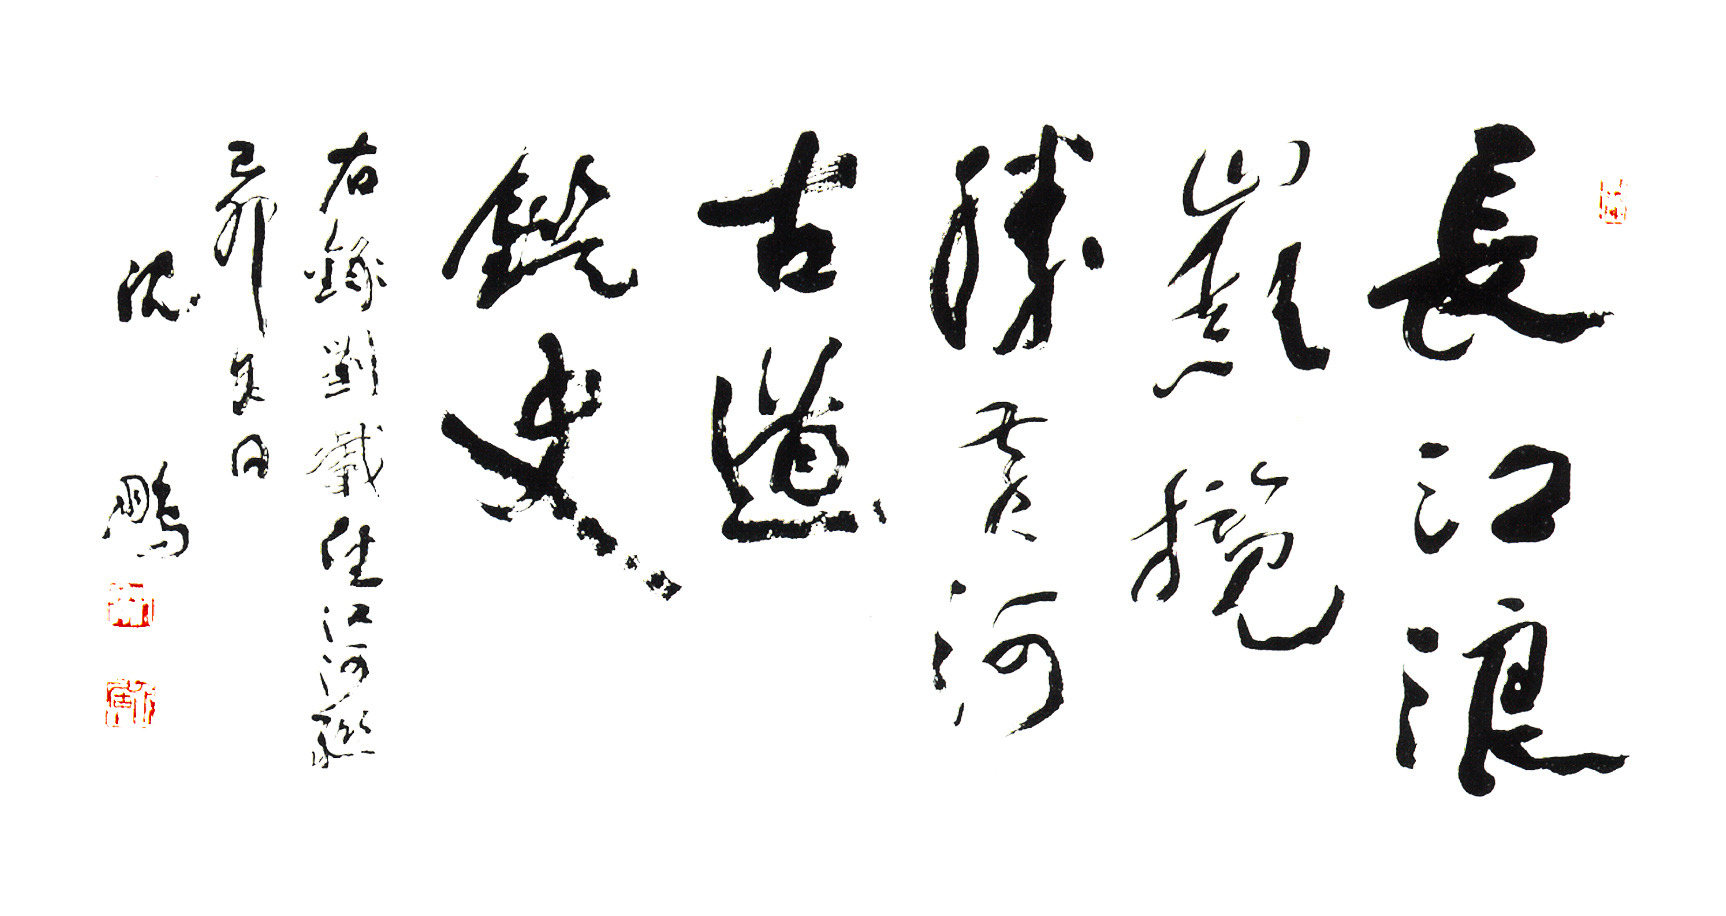 長江浪
巔攬
勝黃河
古道
鑑史
右錄劉江河聯
己卯日
沈鵬